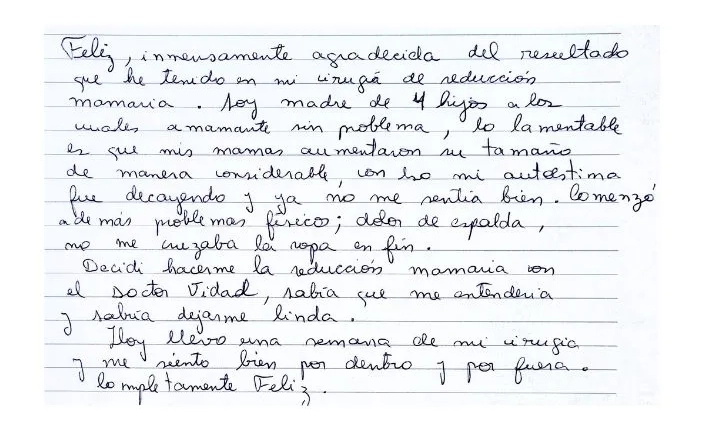 Feliz, inmensamente agradecida del resultado
que he tenido en mi cirugía de reducción
mamaria. Soy madre de 4 hijos a los
cuales amamante sin problema, lo lamentable
es que mis mamas aumentaron su tamaño
de manera considerable, con eso mi autoestima
fue decayendo y ya no me sentia bien. Comenzó
además problemas físico; dolor de espalda,
no me cruzaba la ropa en fin.
Decidi hacerme la reducción mamaria con
el Doctor Vidal, sabía que me entenderia
y sabria dejarme linda.
Hoy llevo una semana de mi cirugia
y me siento bien por dentro y por fuera.
Completamente Feliz.